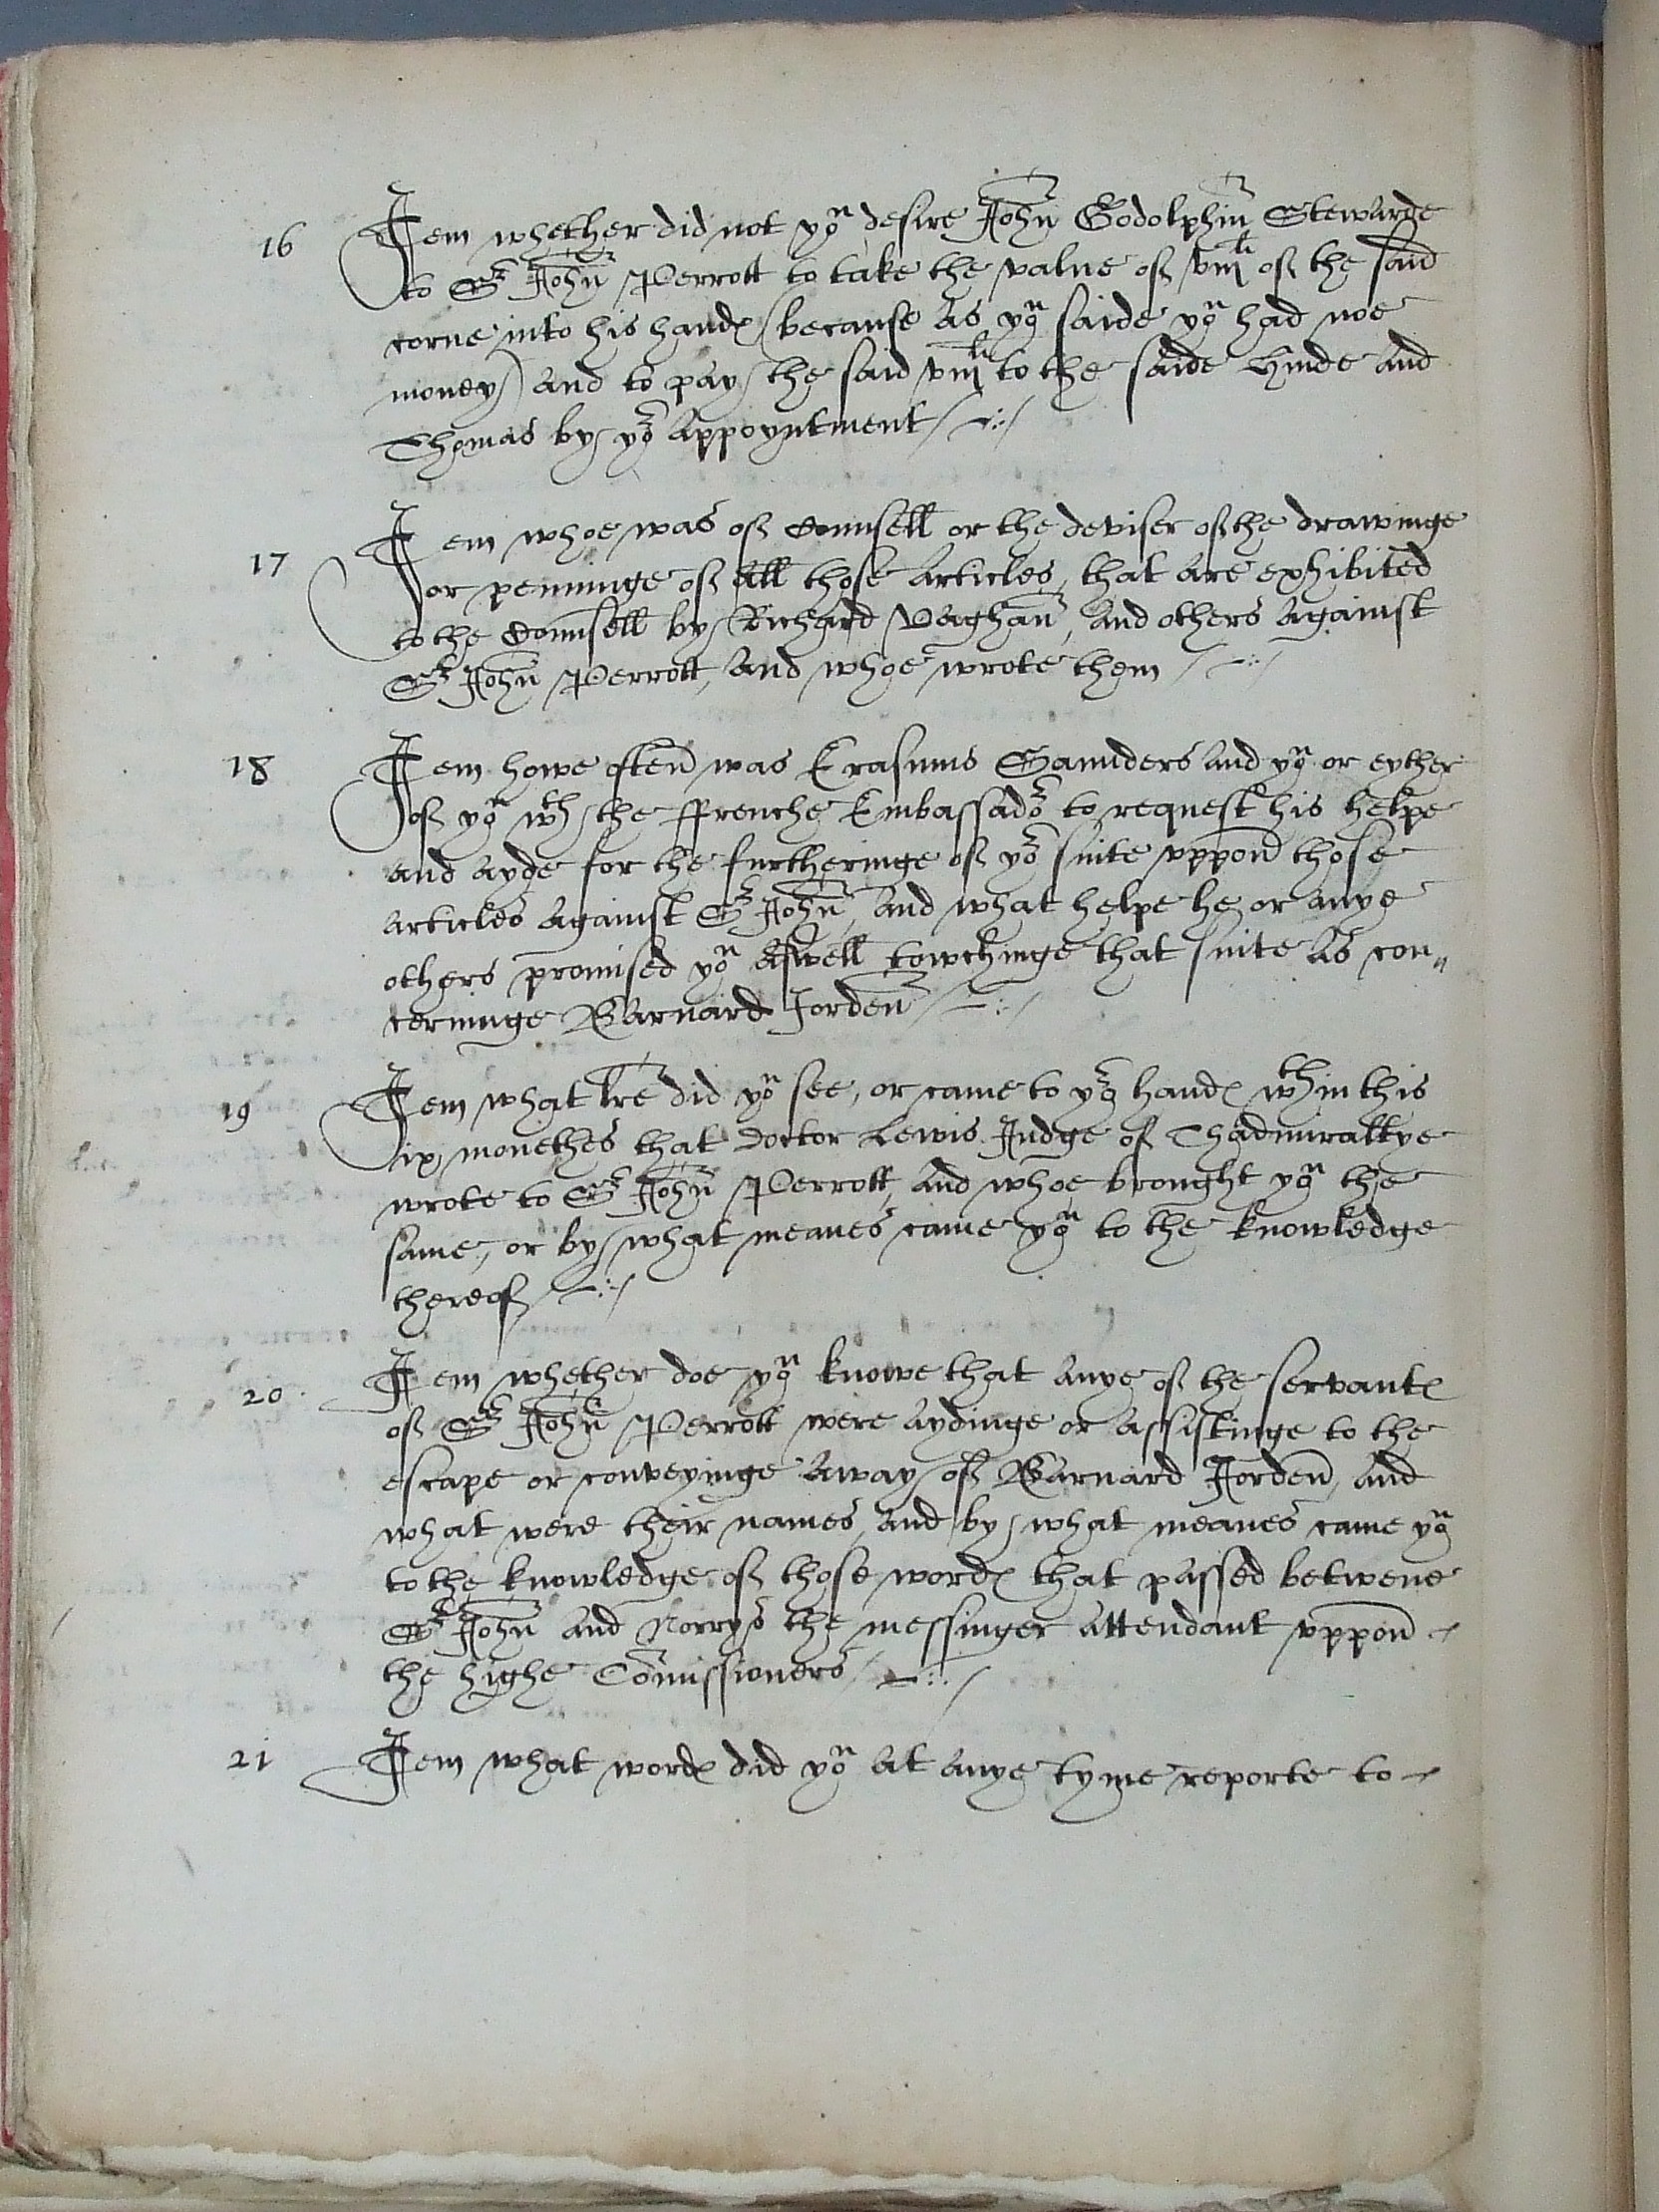 16 Item whether did not yoᵘ desire John Godolphin Stewarde
to Sʳ John Perrott to take the value of viijˡⁱ of the said
corne into his handℯ (because as yoᵘ saide yoᵘ had noe
money) and to pay the said viijˡⁱ to the saide Hinde and
Thomas by yoʳ appoyntment /-:·/
17 Item whoe was of Counsell or the deviser of the drawinge
or penninge of all those articles, that are exhibited
to the Counsell by Richard Vaghan, and others against
Sʳ John Perrott, and whoe wrote them /-:·/
18 Item howe often was Erasmus Saunders and yoᵘ or eyther
of yoᵘ wᵗʰ the ffrenche Embassadoʳ to request his helpe
and ayde for the furtheringe of yoʳ suite vppon those
articles against Sʳ John, and what helpe he or anye
others promised yoᵘ aswell towchinge that suite as con„
cerninge Barnard Jorden /-:·/
19 Item what l̅r̅e did yoᵘ see, or came to yoʳ handℯ wᵗʰin this
ix monethes that doctor Lewis Judge of Thadmiraltye
wrote to Sʳ John Perrott, and whoe brought yoᵘ the
same, or by what meanes came yoᵘ to the knowledge
thereof /-:·/
20 Item whether doe yoᵘ knowe that anye of the servantℯ
of Sʳ John Perrott were aydinge or assistinge to the
escape or conveyinge away of Barnard Jorden, and
what were their names, and by what meanes came yoᵘ
to the knowledge of those wordℯ that passed betwene
Sʳ John and Norrys the messinger attendant vppon -
the highe Com̅issioners /-:·/
21 Item what wordℯ did yoᵘ at anye tyme reporte to -